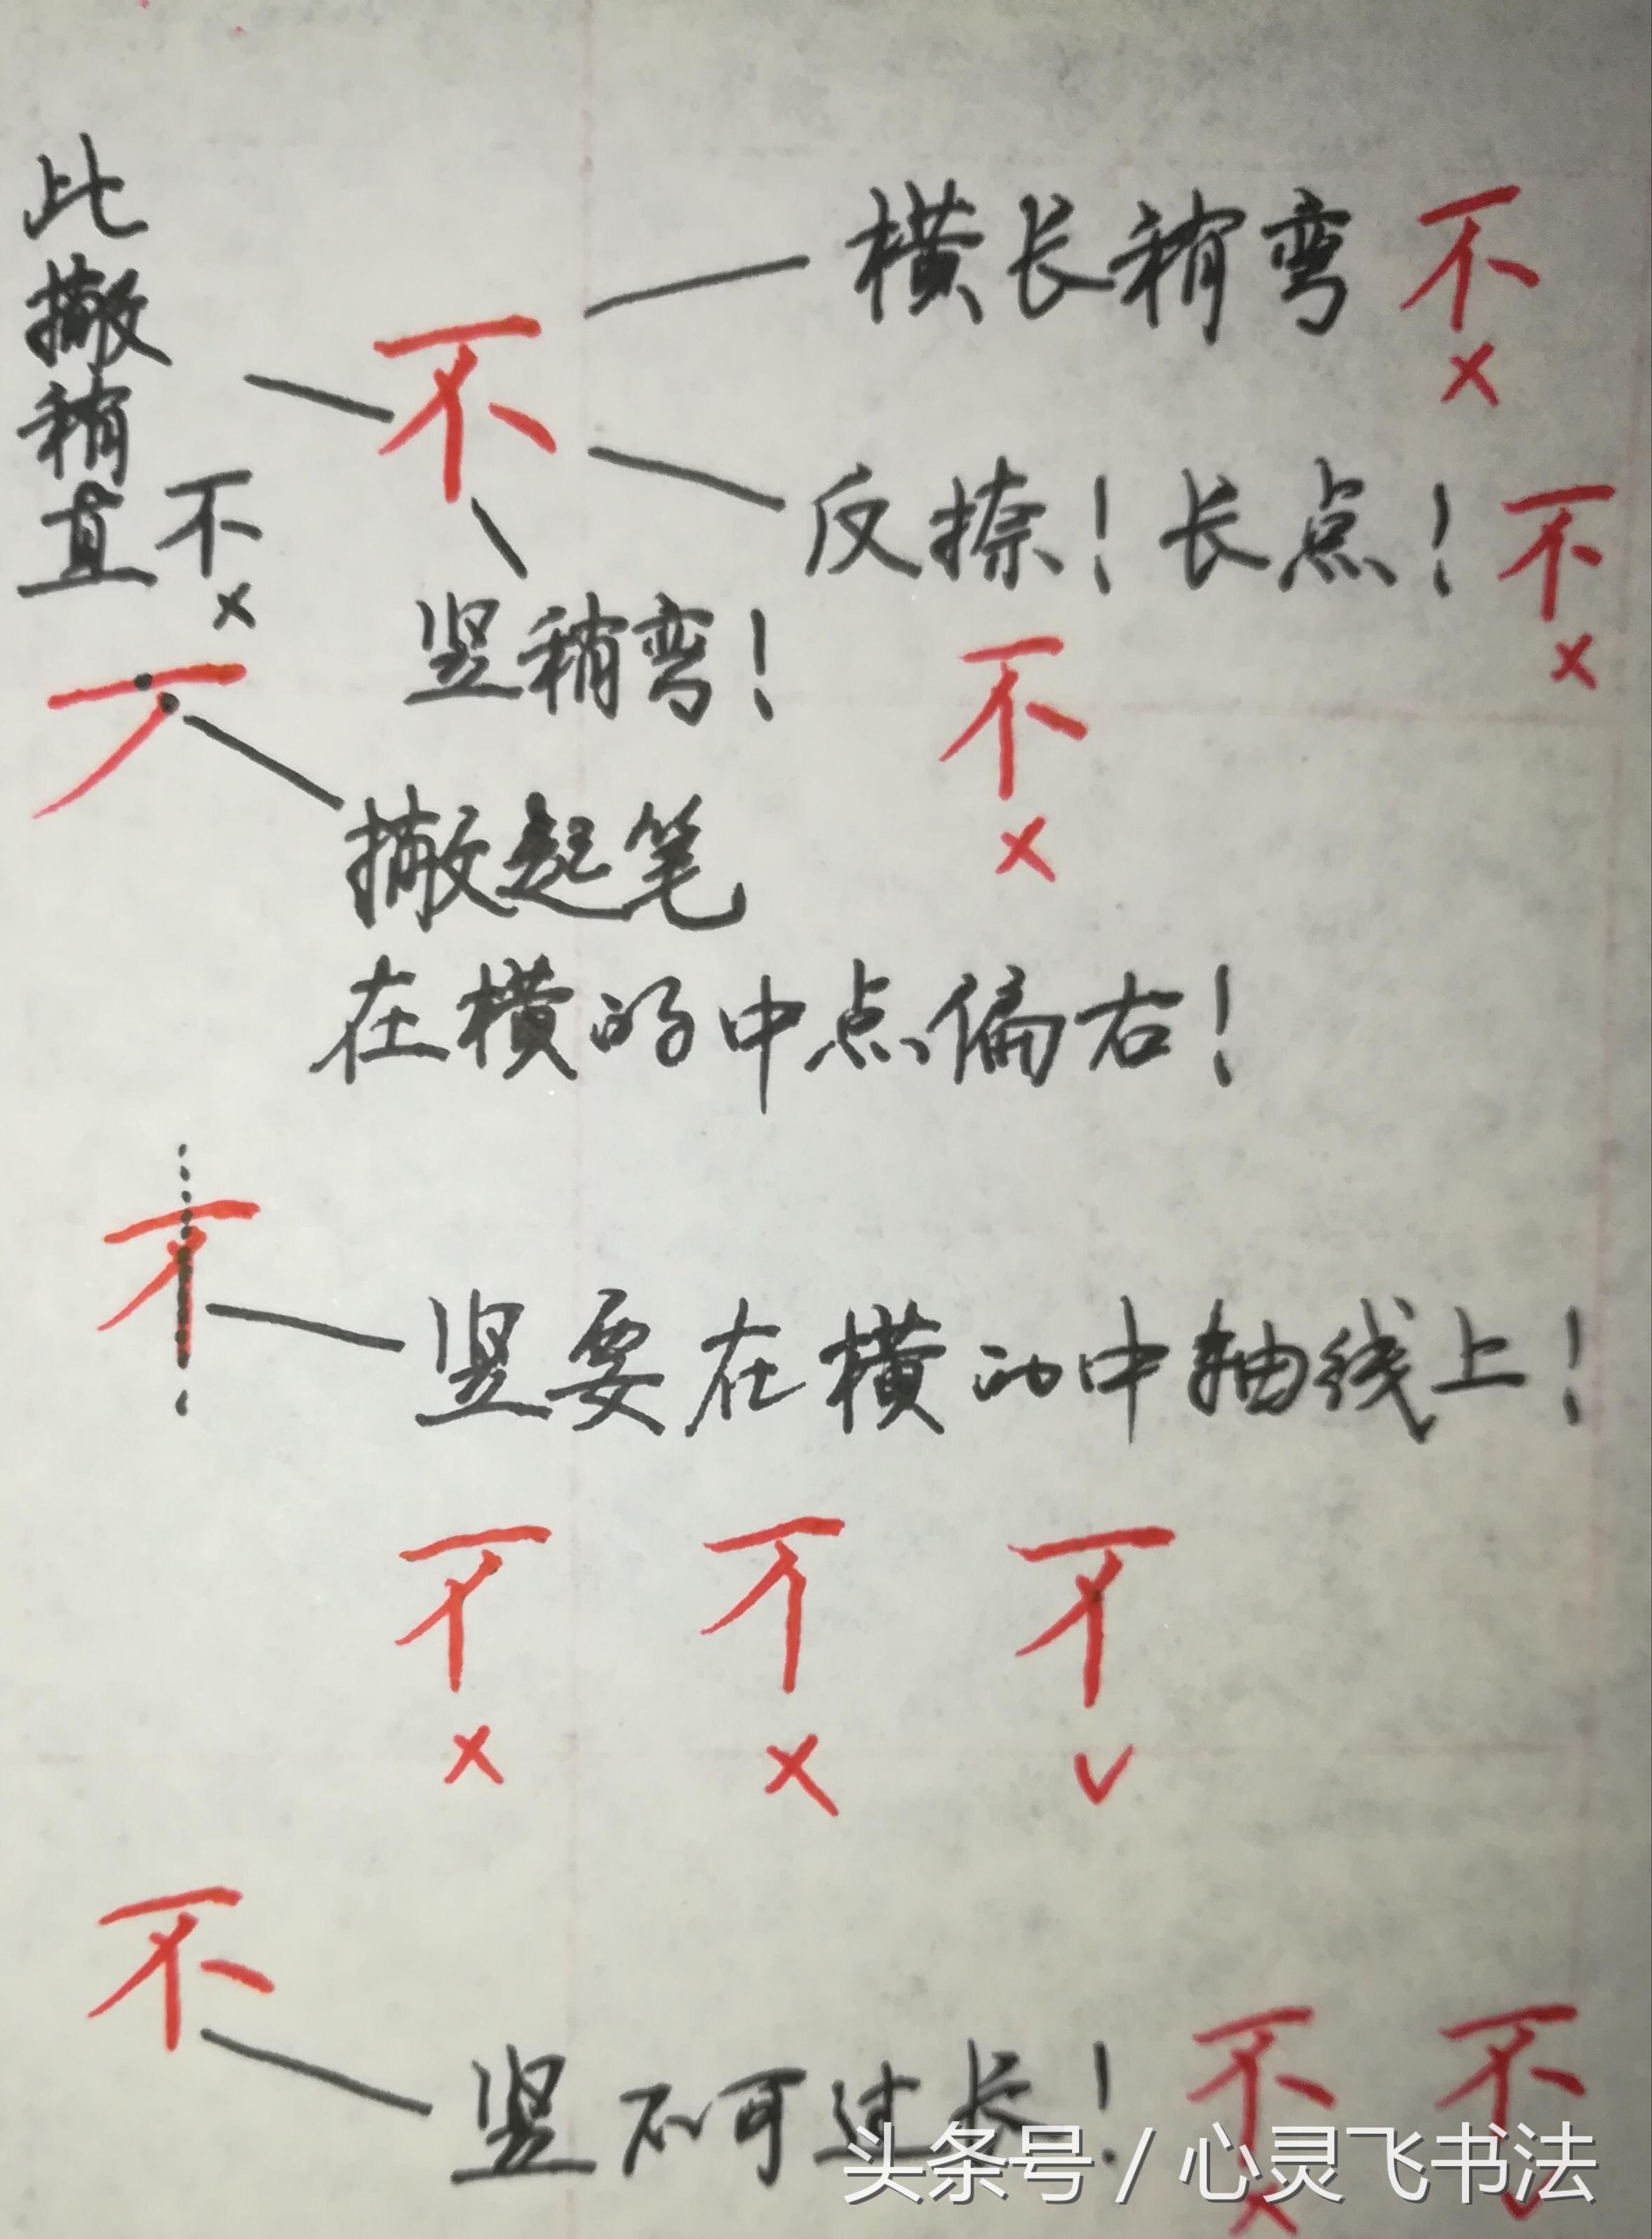 此撇稍直
不
×
不
横长稍弯
不
×
反捺！长点！
不
×
竖稍弯！
不
×
撇起笔
在横的中点偏右！
竖要在横的中轴线上！
×
×
✓
不
竖不可过长！
不
×
不
✓
头条号 / 心灵飞书法